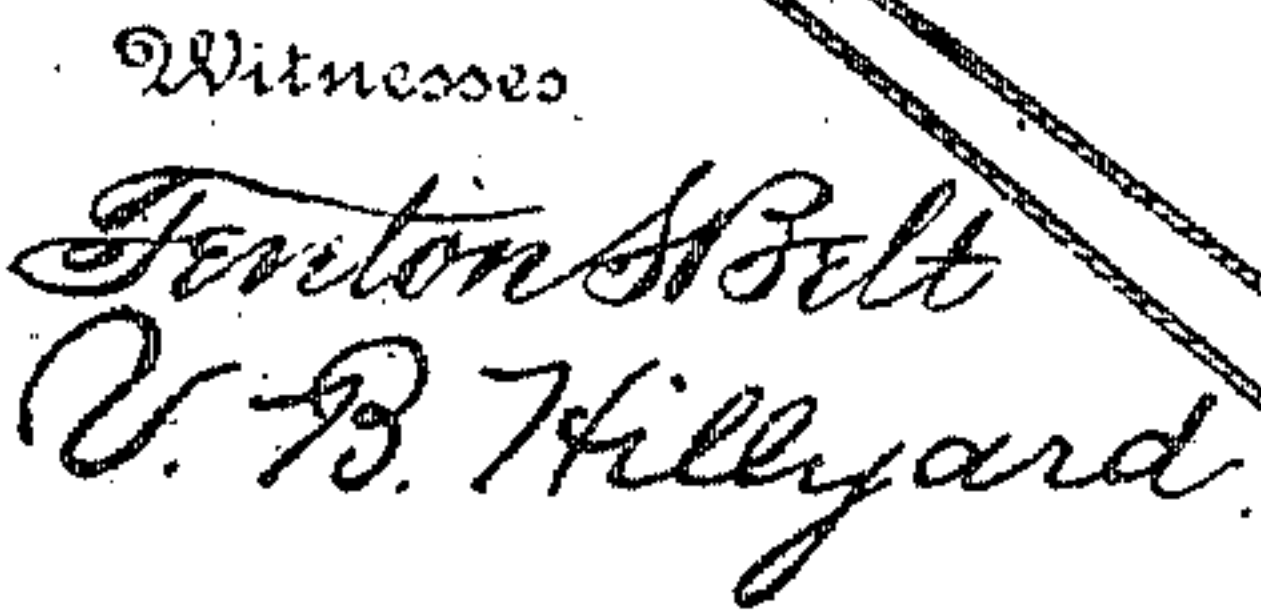 Witnesses
Fenton S Belt
V. B. Hillyard.